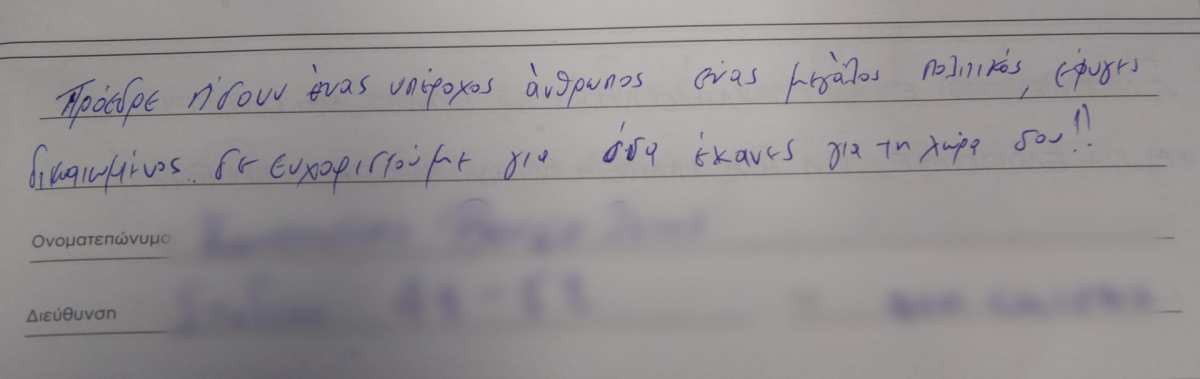 Πρόεδρε ήσουν ένας υπέροχος άνθρωπος ένας μεγάλος πολιτικός, έφυγες
δικαιωμένος. σε ευχαριστούμε για όσα έκανες για τη χώρα σου!!
Ονοματεπώνυμο
Διεύθυνση